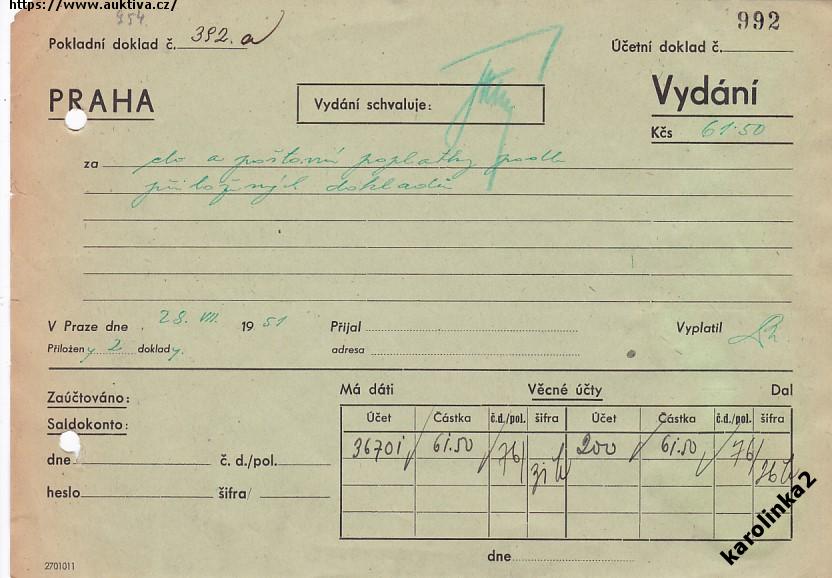 https://www.auktiva.cz/
954
992
Pokladní doklad č. 392.a
Účetní doklad č.
PRAHA
Vydání schvaluje:
Vydání
Kčs 61.50
za clo a poštovní poplatky podle
přiložených dokladů
V Praze dne 28. VII. 1951 Přijal Vyplatil
Přiloženy 2 doklady. adresa
Zaúčtováno: Má dáti Věcné účty Dal
Saldokonto: Účet Částka č.d./pol. šifra Účet Částka č.d./pol. šifra
36701 61.50 76/ 200 61.50 76/
dne č. d./pol.
heslo šifra/
dne
2701011
karolinka2